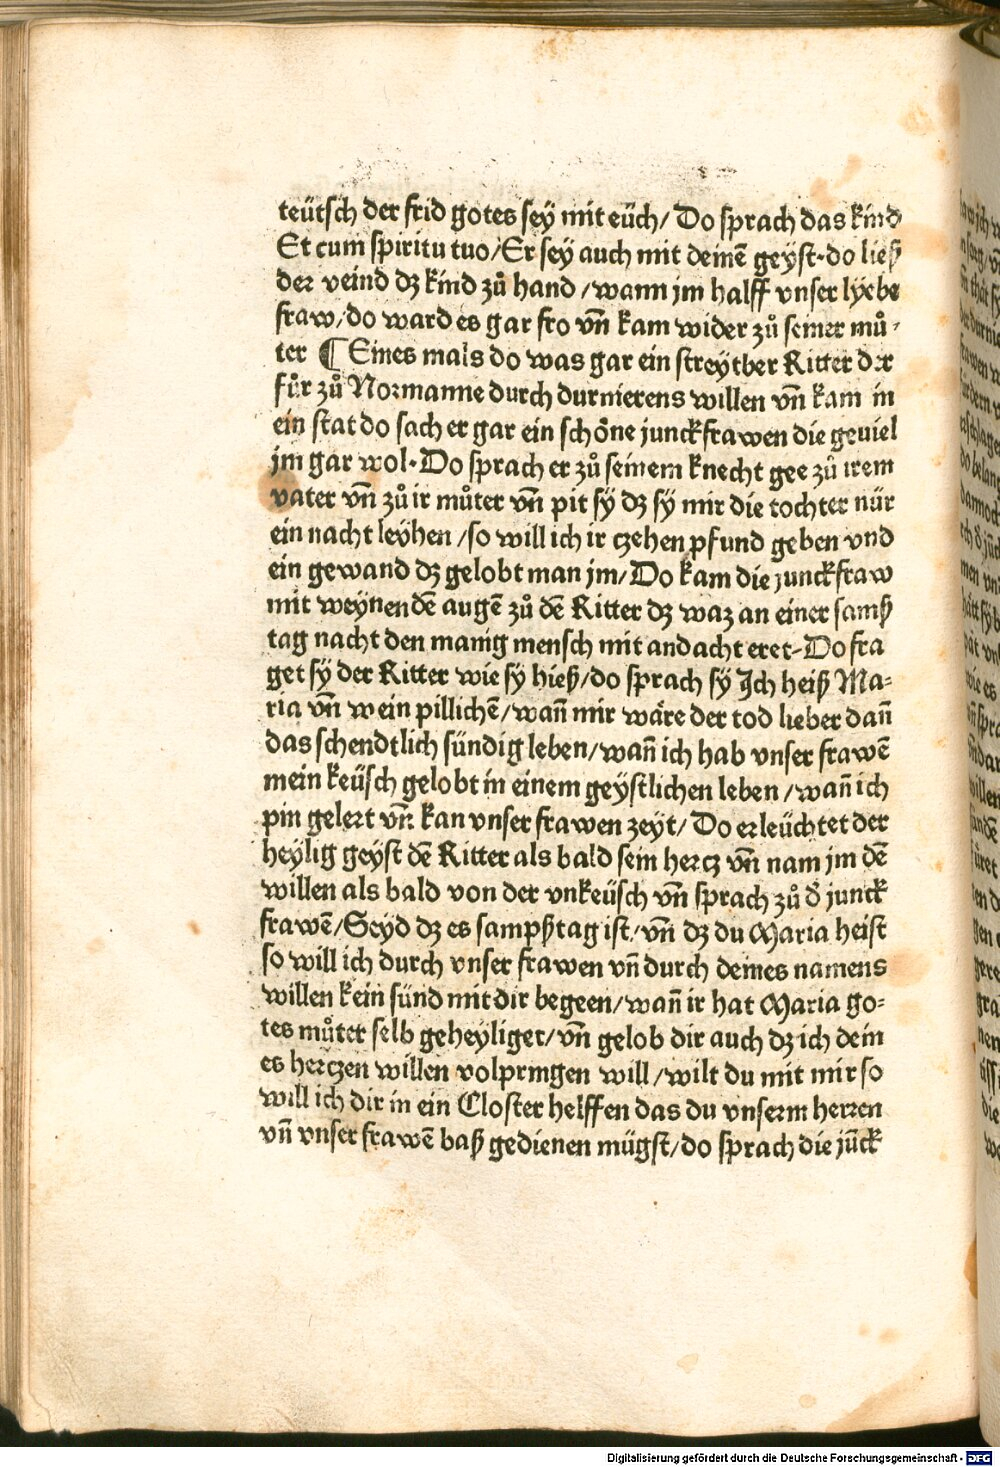 teütsch der frid gotes sey mit eüch/ Do sprach das kind
Et cum spiritu tuo/Er sey auch mit deinē geyst·do ließ
der veind dz kind zů hand/wann jm halff vnser lyebe
fraw/do ward es gar fro vn̄ kam wider zů seiner mů⸗
ter ¶ Eines mals do was gar ein streytber Ritter der
fůr zů Normanne durch durnierens willen vn̄ kam in
ein stat do sach er gar ein schöne junckfrawen die geuiel
jm gar wol·Do sprach er zů seinem knecht gee zů irem
vater vn̄ zů ir můter vn̄ pit sy dz sy mir die tochter nür
ein nacht leyhen/so will ich ir czehen pfund geben vnd
ein gewand dz gelobt man jm/Do kam die junckfraw
mit weynendē augē zů dē Ritter dz waz an einer samß
tag nacht den manig mensch mit andacht eret·Do fra
get sy der Ritter wie sy hieß/do sprach sy Ich heiß Ma⸗
ria vn̄ wein pillichē/wan̄ mir wäre der tod lieber dan̄
das schendtlich sündig leben/wan̄ ich hab vnser frawē
mein keüsch gelobt in einem geystlichen leben/wan̄ ich
pin gelert vn̄ kan vnser frawen zeyt/Do erleüchtet der
heylig geyst dē Ritter als bald sein hercz vn̄ nam jm dē
willen als bald von der vnkeüsch vn̄ sprach zů d̕ junck
frawē/Seyd dz es sampßtag ist/vn̄ dz du Maria heist
so will ich durch vnser frawen vn̄ durch deines namens
willen kein sünd mit dir begeen/wan̄ ir hat Maria go⸗
tes můter selb geheyliget/vn̄ gelob dir auch dz ich dein
es herczen willen volpringen will/wilt du mit mir so
will ich dir in ein Closter helffen das du vnserm herren
vn̄ vnser frawē baß gedienen mügst/do sprach die jūck
Digitalisierung gefördert durch die Deutsche Forschungsgemeinschaft - DFG